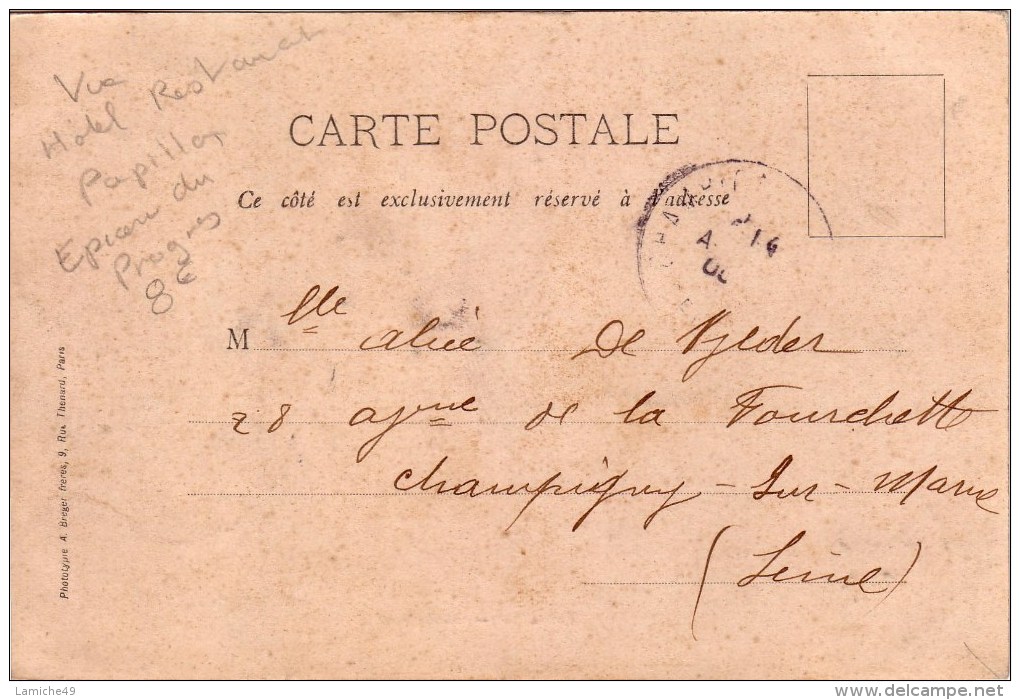 Vue
Hotel Restaurant
Papillon
Epicerie du
Progres
8€
CARTE POSTALE
Ce côté est exclusivement réservé à l'adresse
CHAMPIG
14
M lle alice De Vylder
28 de la Fourchette
Champigny-Sur-Marne
(Seine)
Phototypie A. Breger frères, 9, Rue Thenard, Paris
Lamiche49
http://www.delcampe.net